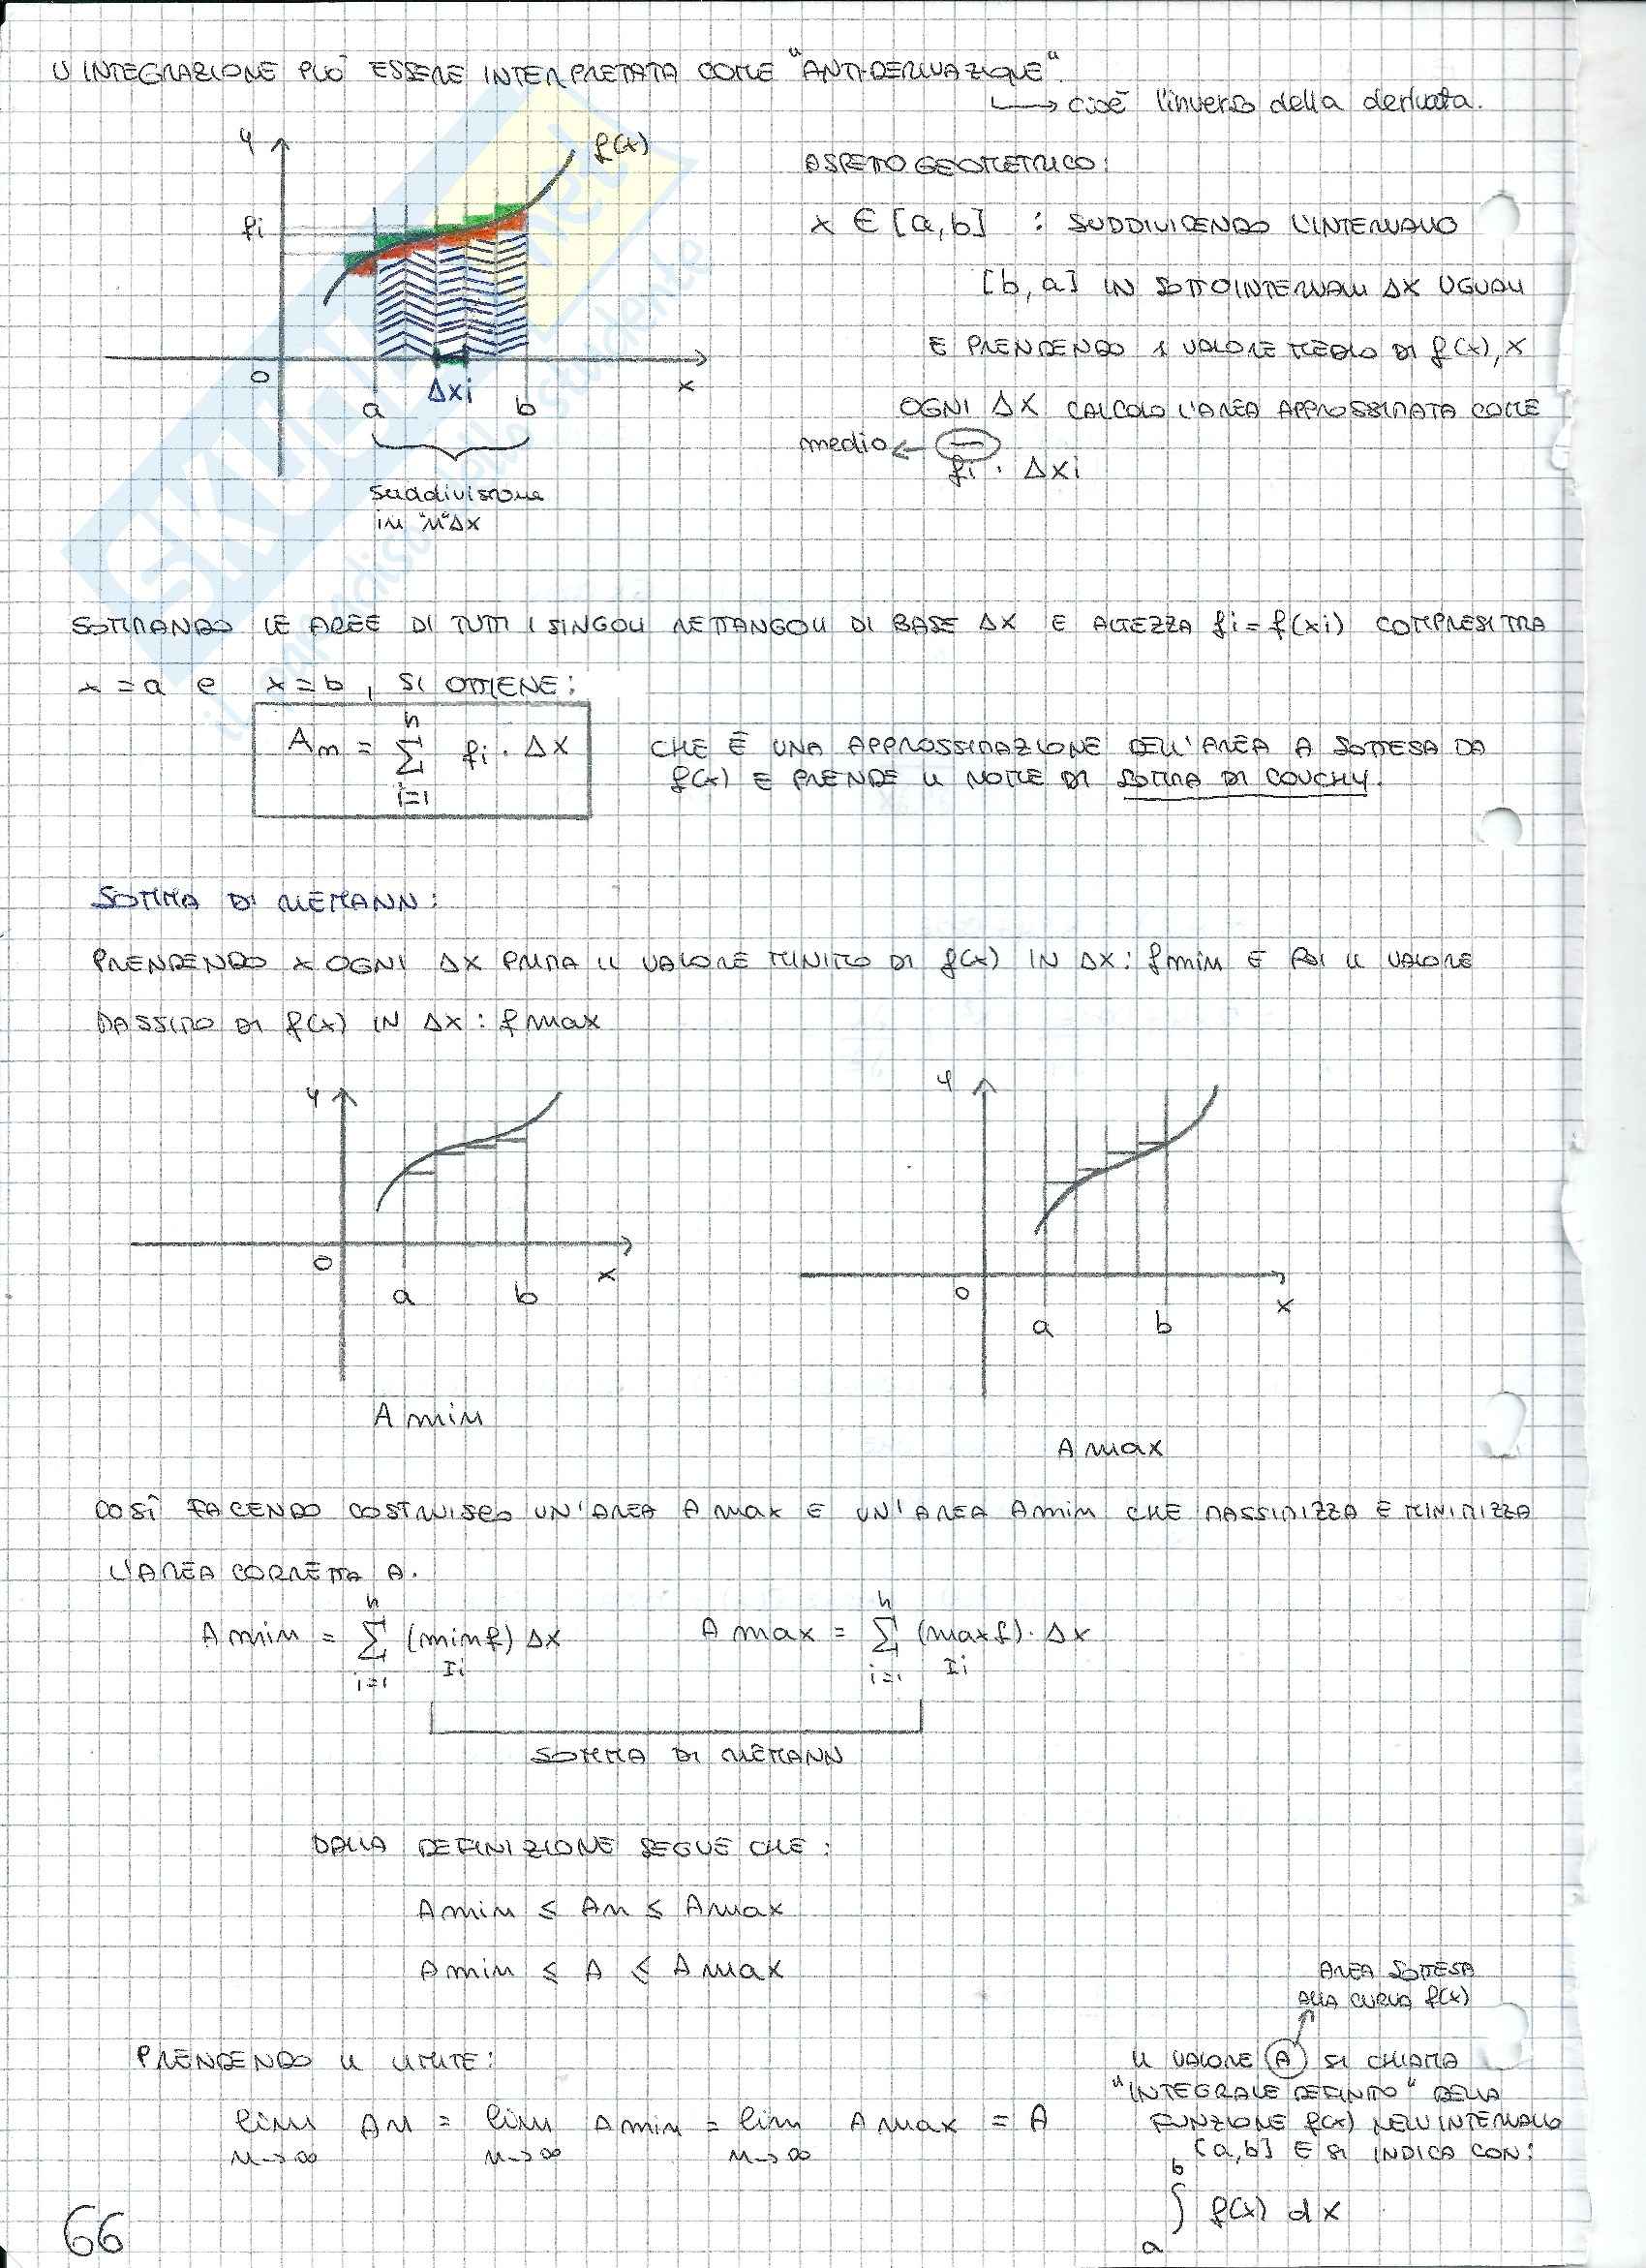 L'INTEGRAZIONE PUÒ ESSERE INTERPRETATA COME "ANTI-DERIVAZIONE".
→ cioè l'inverso della derivata.
y
f(x)
fi
0
a
Δxi
b
x
suddivisione
in "n" Δx
ASPETTO GEOMETRICO:
x ∈ [a,b] : SUDDIVIDENDO L'INTERVALLO
[b,a] IN SOTTOINTERVALLI ΔX UGUALI
E PRENDENDO 1 VALORE MEDIO DI f(x), X
OGNI ΔX CALCOLO L'AREA APPROSSIMATA COME
medio ← f̄i · Δxi
SOMMANDO LE AREE DI TUTTI I SINGOLI RETTANGOLI DI BASE ΔX E ALTEZZA fi = f(xi) COMPRESI TRA
x = a e x = b, SI OTTIENE:
An = Σ fi · ΔX
n
i=1
CHE È UNA APPROSSIMAZIONE DELL'AREA A SOTTESA DA
f(x) E PRENDE IL NOME DI SOMMA DI COUCHY.
SOMMA DI RIEMANN:
PRENDENDO x OGNI ΔX PRIMA IL VALORE MINIMO DI f(x) IN ΔX: fmin E POI IL VALORE
MASSIMO DI f(x) IN ΔX: fmax
y
0
a
b
x
A min
y
0
a
b
x
A max
COSÌ FACENDO COSTRUISCO UN'AREA A max E UN'AREA A min CHE MASSIMIZZA E MINIMIZZA
L'AREA CORRETTA A.
A min = Σ (min f) Δx
n
i=1
Ii
A max = Σ (max f) · Δx
n
i=1
Ii
SOMMA DI RIEMANN
DALLA DEFINIZIONE SEGUE CHE:
A min ≤ An ≤ A max
A min ≤ A ≤ A max
PRENDENDO IL LIMITE:
lim An = lim A min = lim A max = A
n→∞ n→∞ n→∞
AREA SOTTESA
ALLA CURVA f(x)
IL VALORE A SI CHIAMA
"INTEGRALE DEFINITO" DELLA
FUNZIONE f(x) NELL'INTERVALLO
[a,b] E SI INDICA CON:
b
∫ f(x) dx
a
66